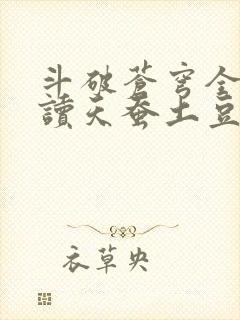 斗破蒼穹全
讀天蚕土豆
衣草央